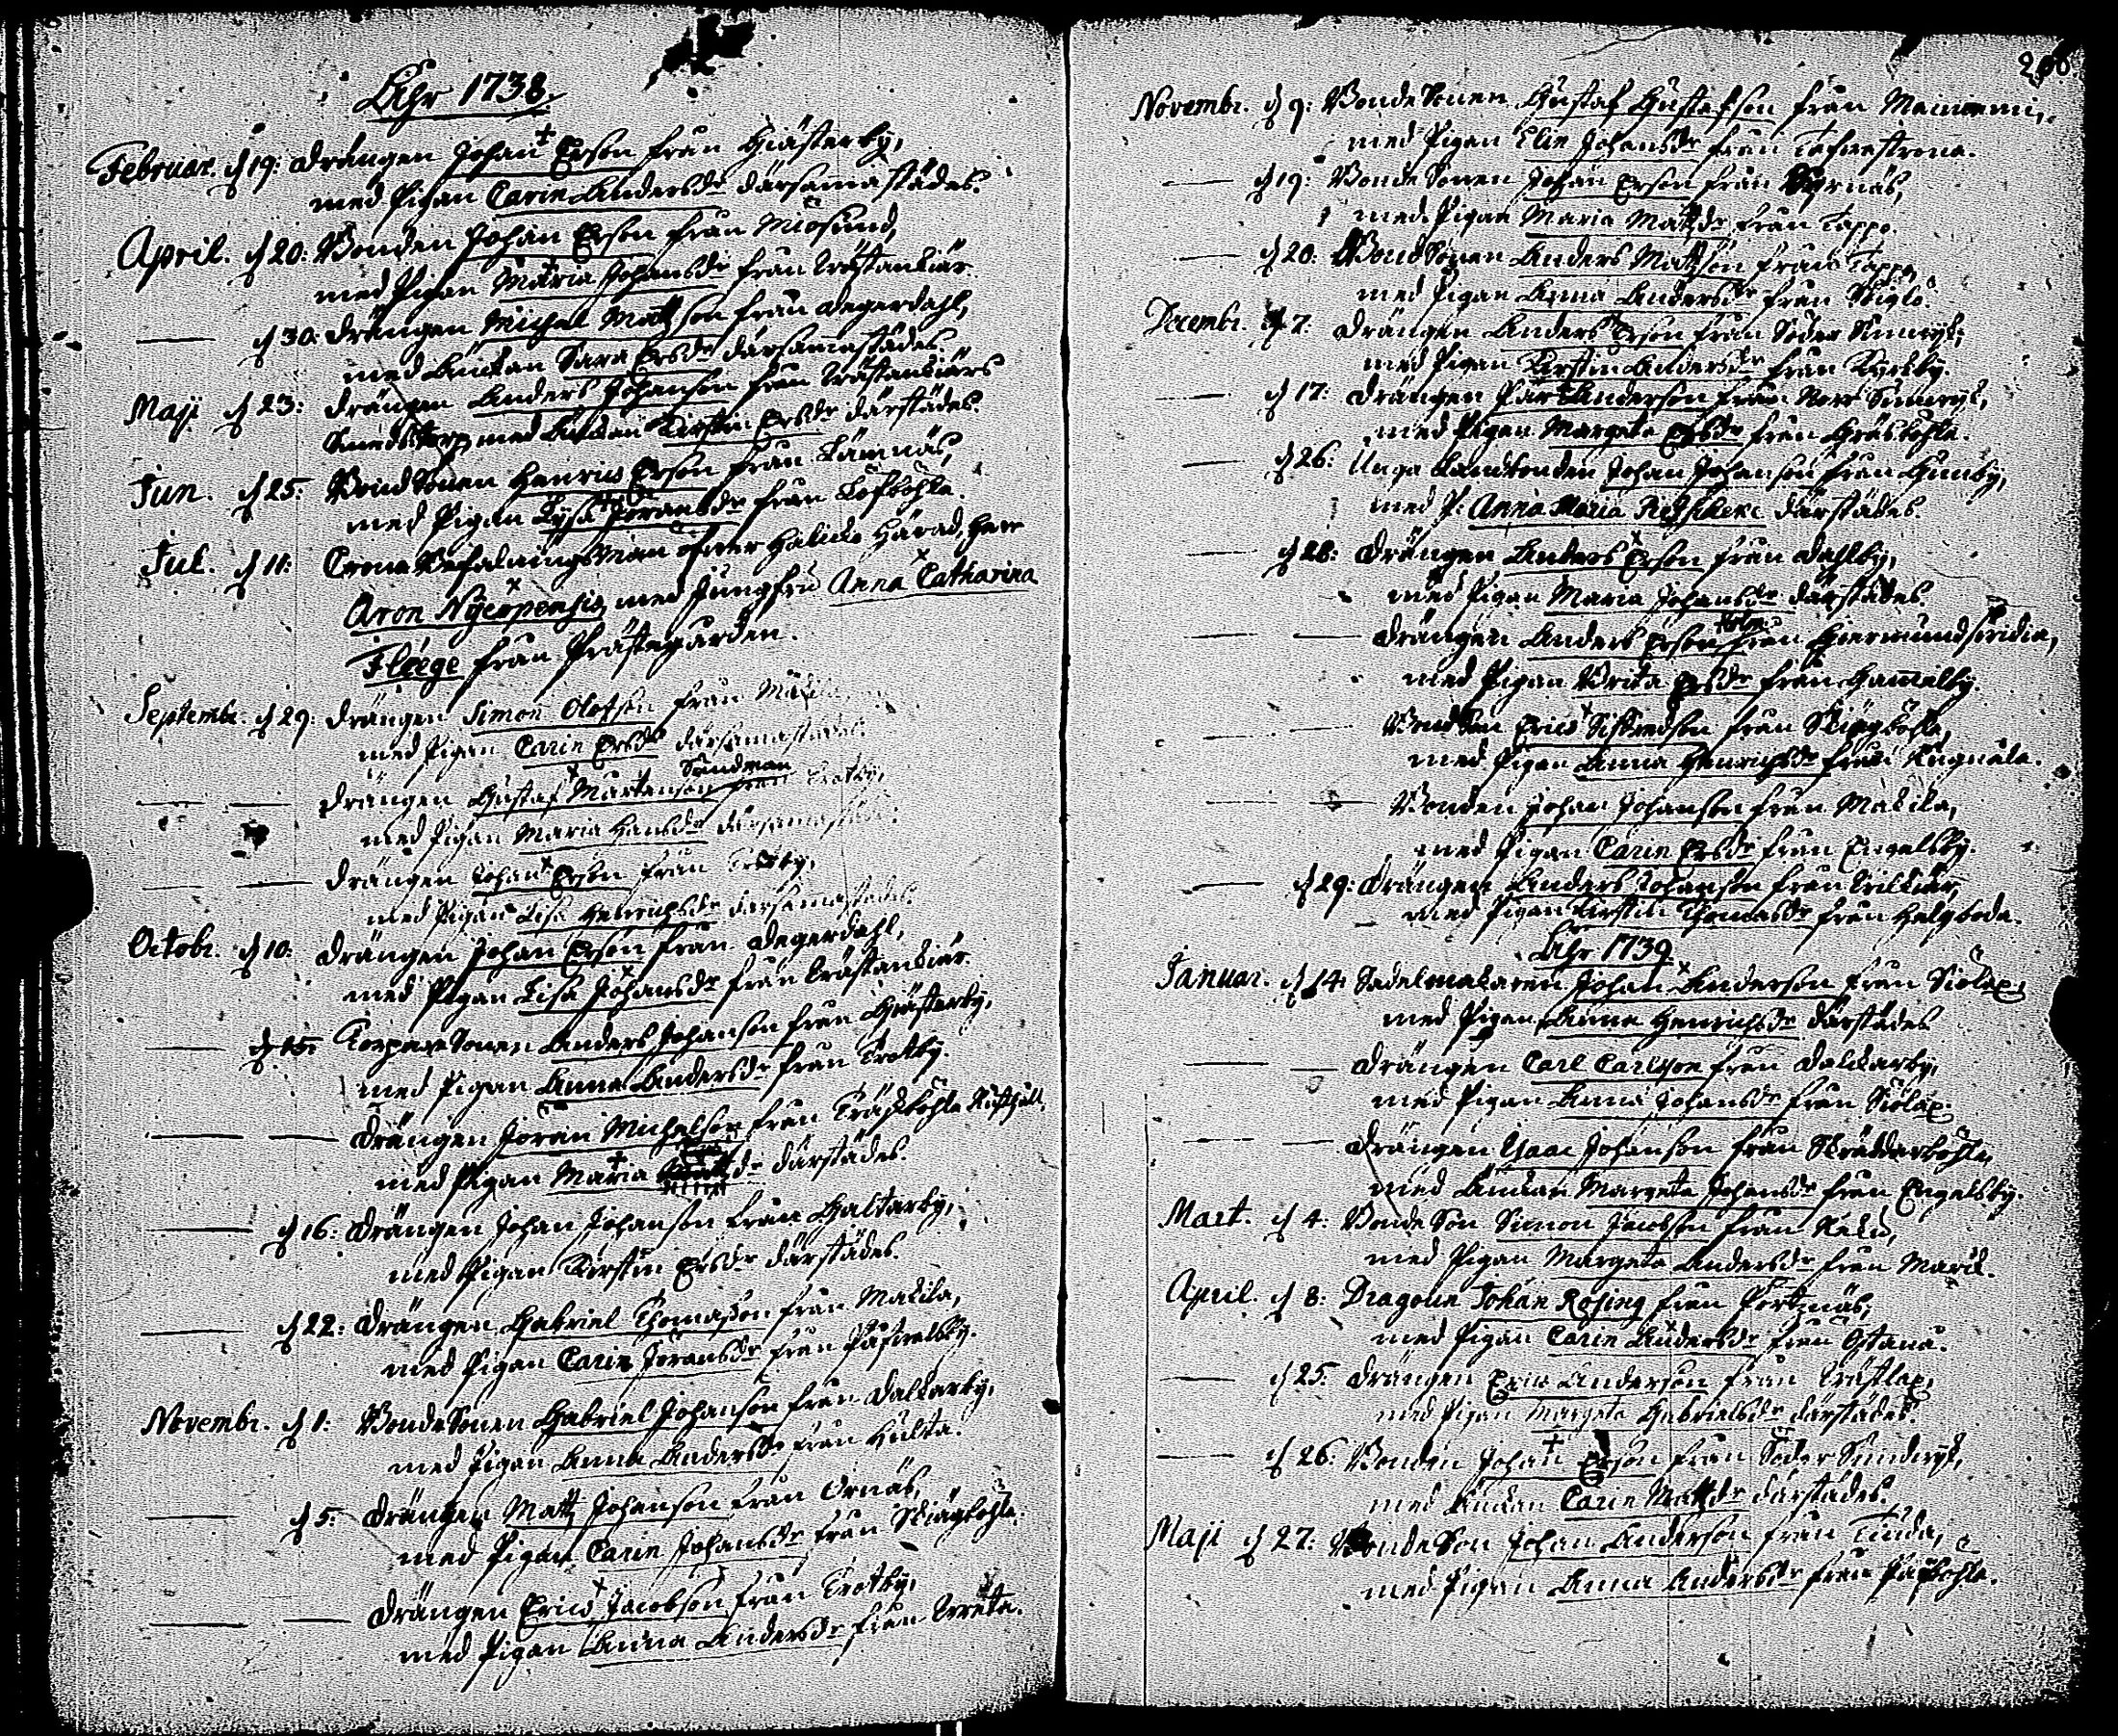 Åhr 1738.
Februar. d 19: Drängen Johan Erson från Giästerby,
med Pigan Carin Andersdr därsammastädes.
April. d 20: Bonden Johan Erson från Miösund,
med Pigan Maria Johansdr från Trästankiär.
d 30: Drängen Michel Mattsson från Degerdahl,
med Änkan Sara Ersdr därsammastädes.
Maji d 23: Drängen Anders Johanson från Trästankiärs
Smedstorp, med Änkan Kirstin Ersdr därstädes.
Jun. d 25: Bond Sonen Henrics Erson från Lämnäs,
med Pigan Lysa Joransdr från Löfböhle.
Jul. d 11: Crono Befalningsman öfwer Haliko Härad, Herr
Aron Nycopensis, med Jungfru Anna Catharina
Fleege från Prästegården.
Septembr. d 29: Drängen Simon Olofson från
med Pigan Carin Ersdr därsammastädes.
Sundman
Drängen Gustaf Mårtenson från Trotby,
med Pigan Maria Hansdr därsammastädes.
Drängen Johan Erson från Trotby,
med Pigan Lisa Henrichsdr därsammastädes.
Octobr. d 10: Drängen Johan Erson från Degerdahl,
med Pigan Lisa Johansdr från Trästankiär.
d 15: Torpare Sonen Anders Johanson från Giästerby,
med Pigan Anna Andersdr från Trotby.
Drängen Joran Michelson från Träskböhle
med Pigan Maria därstädes.
d 16: Drängen Johan Johanson från Galtarby,
med Pigan Kirstin Ersdr därstädes.
d 22: Drängen Gabriel Thomasson från Makila,
med Pigan Carin Joransdr från Påfwalsby.
Novembr. d 1: Bonde Sonen Gabriel Johanson från Dalkarby,
med Pigan Anna Andersdr från Hulta.
d 5: Drängen Matts Johanson från Örnäs,
med Pigan Carin Johansdr från Skiägböhle.
Drängen Erics Jacobson från Trotby,
med Pigan Anna Andersdr från Wreta.
Novembr. d 9: Bonde Sonen Gustaf Gustafson från
med Pigan Elin Johansdr från
d 19: Bonde Sonen Johan Erson från
med Pigan Maria Mattsdr från Tappo.
d 20: Bond Sonen Anders Mattson från Tappo,
med Pigan Anna Andersdr från
Decembr. d 7: Drängen Anders Erson från Söder Sundwijk,
med Pigan Kirstin Andersdr från Kyrkby.
d 17: Drängen Pär Anderson från Norr Sundwijk,
med Pigan Margeta Ersdr från Gräsböhle.
d 26: Unga Landbonden Johan Johanson från Gunby,
med P: Anna Maria därstädes.
d 28: Drängen Anders Erson från Dahlby,
med Pigan Maria Johansdr därstädes.
Holm
Drängen Anders Erson från
med Pigan Brita Ersdr från Gammelby.
Bond Son Erics Sigfredson från Skiägböhle,
med Pigan Anna Henrichsdr från Rugnola.
Bonden Johan Johanson från Makila,
med Pigan Carin Ersdr från Engelsby.
d 29: Drängen Anders Johanson från
med Pigan Kirstin Thomasdr från Helgboda.
Åhr 1739.
Januar. d 14: Sadelmakaren Johan Anderson från Siölax,
med Pigan Anna Henrichsdr därstädes
Drängen Carl Carlsson från Dalkarby,
med Pigan Anna Johansdr från Siölax.
Drängen Isaac Johanson från Skräddarböhle,
med Änkan Margeta Johansdr från Engelsby.
Mart. d 4: Bonde Son Simon Jacobson från
med Pigan Margeta Andersdr från Mark.
April. d 8: Dragoun Johan Rosing från Pörtznäs,
med Pigan Carin Andersdr från Östanå.
d 25: Drängen Erics Anderson från
med Pigan Margeta Gabrielsdr därstädes.
d 26: Bonden Johan Erson från Söder Sundwijk,
med Änkan Carin Mattsdr därstädes.
Maji d 27: Bonde Son Johan Anderson från
med Pigan Anna Andersdr från